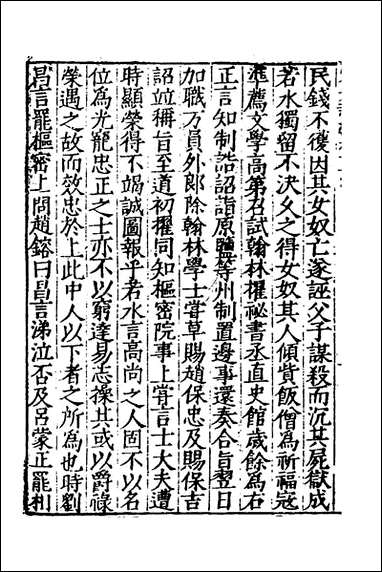 民錢不獲因其女奴亡遂誣父子謀殺而沉其屍獄成
若水獨留不決久之得女奴其人傾貲飯僧為祈福冦
凖薦文學高第召試翰林擢祕書丞直史館歲餘為右
正言知制誥詔詣原鹽等州制置邊事還奏合旨翌日
加職方員外郎除翰林學士甞草賜趙保忠及賜保吉
詔並稱旨至道初擢同知樞密院事上甞言士大夫遭
時顯榮得不竭誠圖報乎若水言高尚之人固不以名
位為光寵忠正之士亦不以窮達易志操其或以爵祿
榮遇之故而效忠於上此中人以下者之所為也時劉
昌言罷樞密上問趙鎔曰昌言涕泣否及呂蒙正罷相